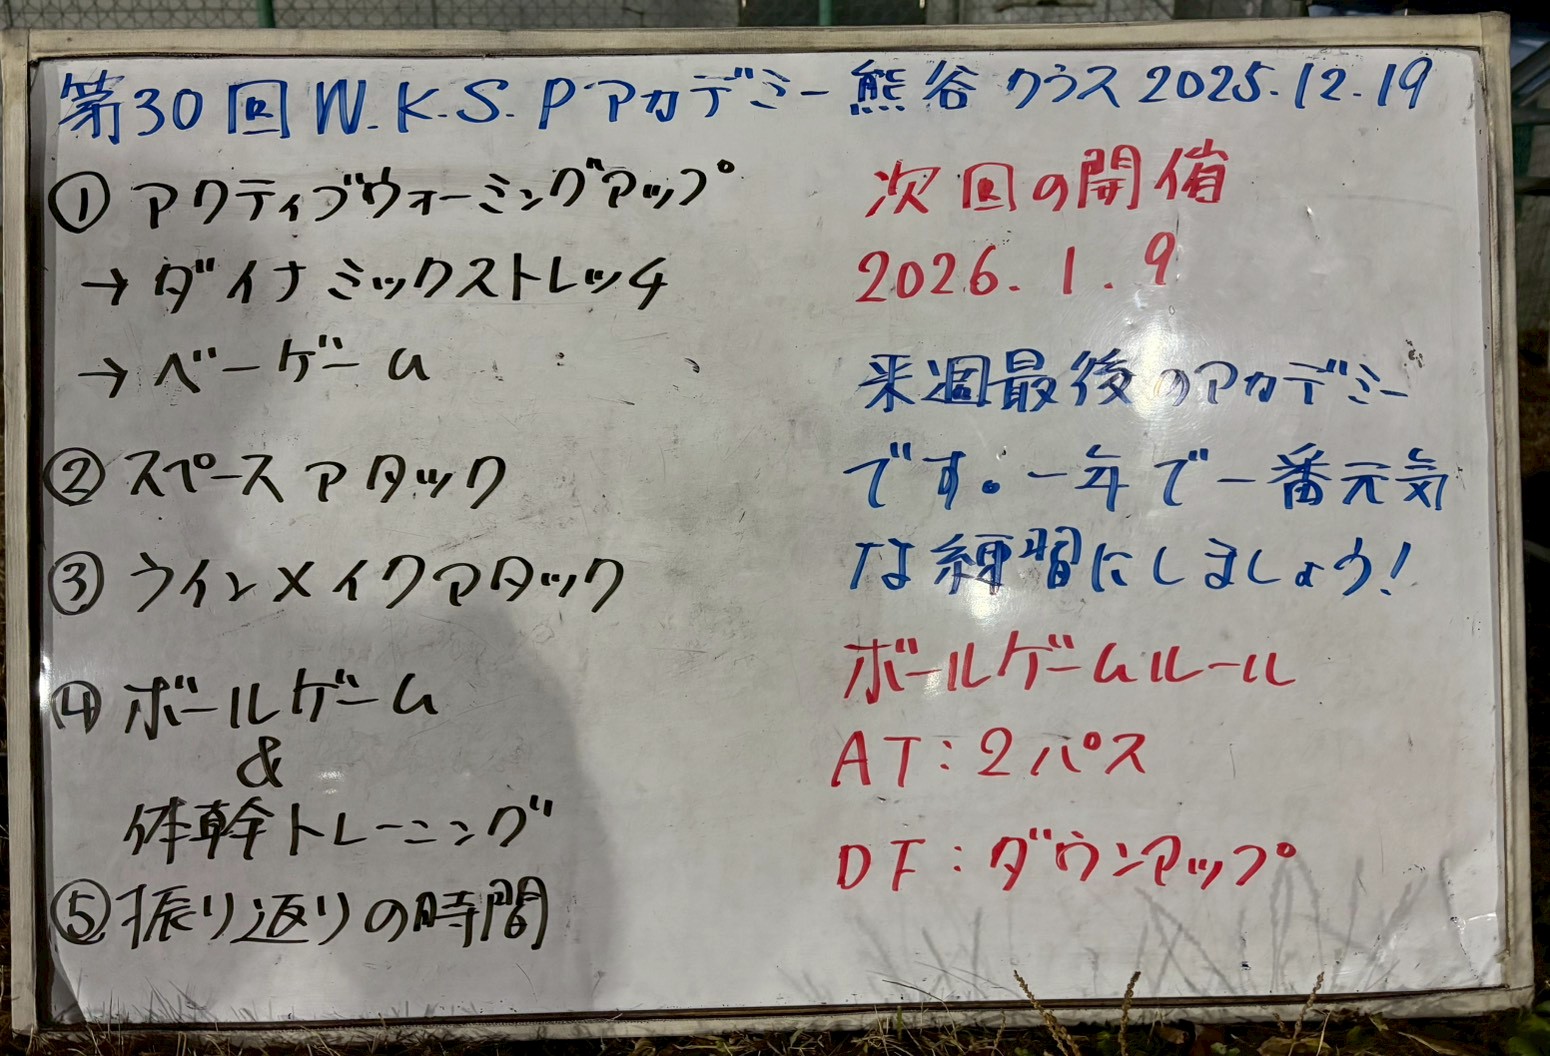 第30回 W.K.S.Pアカデミー 熊谷クラス 2025.12.19
① アクティブウォーミングアップ
→ ダイナミックストレッチ
→ ベーゲーム
② スペースアタック
③ ラインメイクアタック
④ ボールゲーム
&
体幹トレーニング
⑤ 振り返りの時間
次回の開催
2026.1.9
来週最後のアカデミー
です。一年で一番元気
な練習にしましょう!
ボールゲームルール
AT:2パス
DF:ダウンアップ